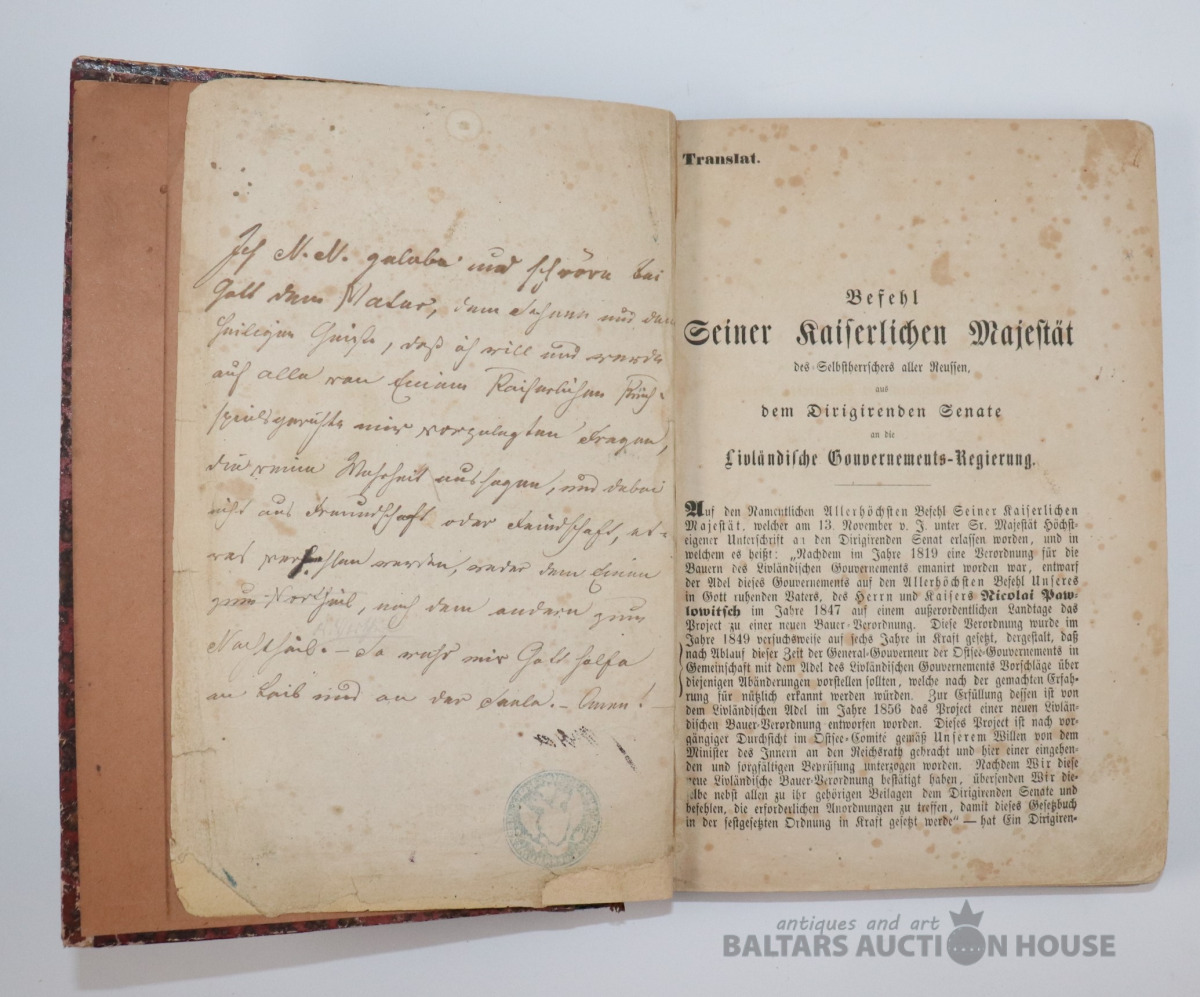 Ich N. N. gelobe und schwöre bei
Gott dem Vater, dem Sohne und dem
heiligen Geiste, daß ich will und werde
auf alle von Einem Kaiserlichen Kirch-
spielsgerichte mir vorgelegten Fragen,
die reine Wahrheit aussagen, und dabei
nicht aus Freundschaft oder Feindschaft, et-
was verhehlen werde, weder dem Einen
zum Vortheil, noch dem andern zum
Nachtheil. – So wahr mir Gott helfe
an Leib und an der Seele. – Amen!
Translat.
Befehl
Seiner Kaiserlichen Majestät
des Selbstherrschers aller Reussen,
aus
dem Dirigirenden Senate
an die
Livländische Gouvernements-Regierung.
Auf den Namentlichen Allerhöchsten Befehl Seiner Kaiserlichen
Majestät, welcher am 13. November v. J. unter Sr. Majestät Höchst-
eigener Unterschrift an den Dirigirenden Senat erlassen worden, und in
welchem es heißt: „Nachdem im Jahre 1819 eine Verordnung für die
Bauern des Livländischen Gouvernements emanirt worden war, entwarf
der Adel dieses Gouvernements auf den Allerhöchsten Befehl Unseres
in Gott ruhenden Vaters, des Herrn und Kaisers Nicolai Paw-
lowitsch im Jahre 1847 auf einem außerordentlichen Landtage das
Project zu einer neuen Bauer-Verordnung. Diese Verordnung wurde im
Jahre 1849 versuchsweise auf sechs Jahre in Kraft gesetzt, dergestalt, daß
nach Ablauf dieser Zeit der General-Gouverneur der Ostsee-Gouvernements in
Gemeinschaft mit dem Adel des Livländischen Gouvernements Vorschläge über
diejenigen Abänderungen vorstellen sollten, welche nach der gemachten Erfah-
rung für nützlich erkannt werden würden. Zur Erfüllung dessen ist von
dem Livländischen Adel im Jahre 1856 das Project einer neuen Livlän-
dischen Bauer-Verordnung entworfen worden. Dieses Project ist nach vor-
gängiger Durchsicht im Ostsee-Comité gemäß Unserem Willen von dem
Minister des Innern an den Reichsrath gebracht und hier einer eingehen-
den und sorgfältigen Beprüfung unterzogen worden. Nachdem Wir diese
neue Livländische Bauer-Verordnung bestätigt haben, übersenden Wir die-
selbe nebst allen zu ihr gehörigen Beilagen dem Dirigirenden Senate und
befehlen, die erforderlichen Anordnungen zu treffen, damit dieses Gesetzbuch
in der festgesetzten Ordnung in Kraft gesetzt werde“ — hat Ein Dirigiren-
antiques and art
BALTARS AUCTION HOUSE